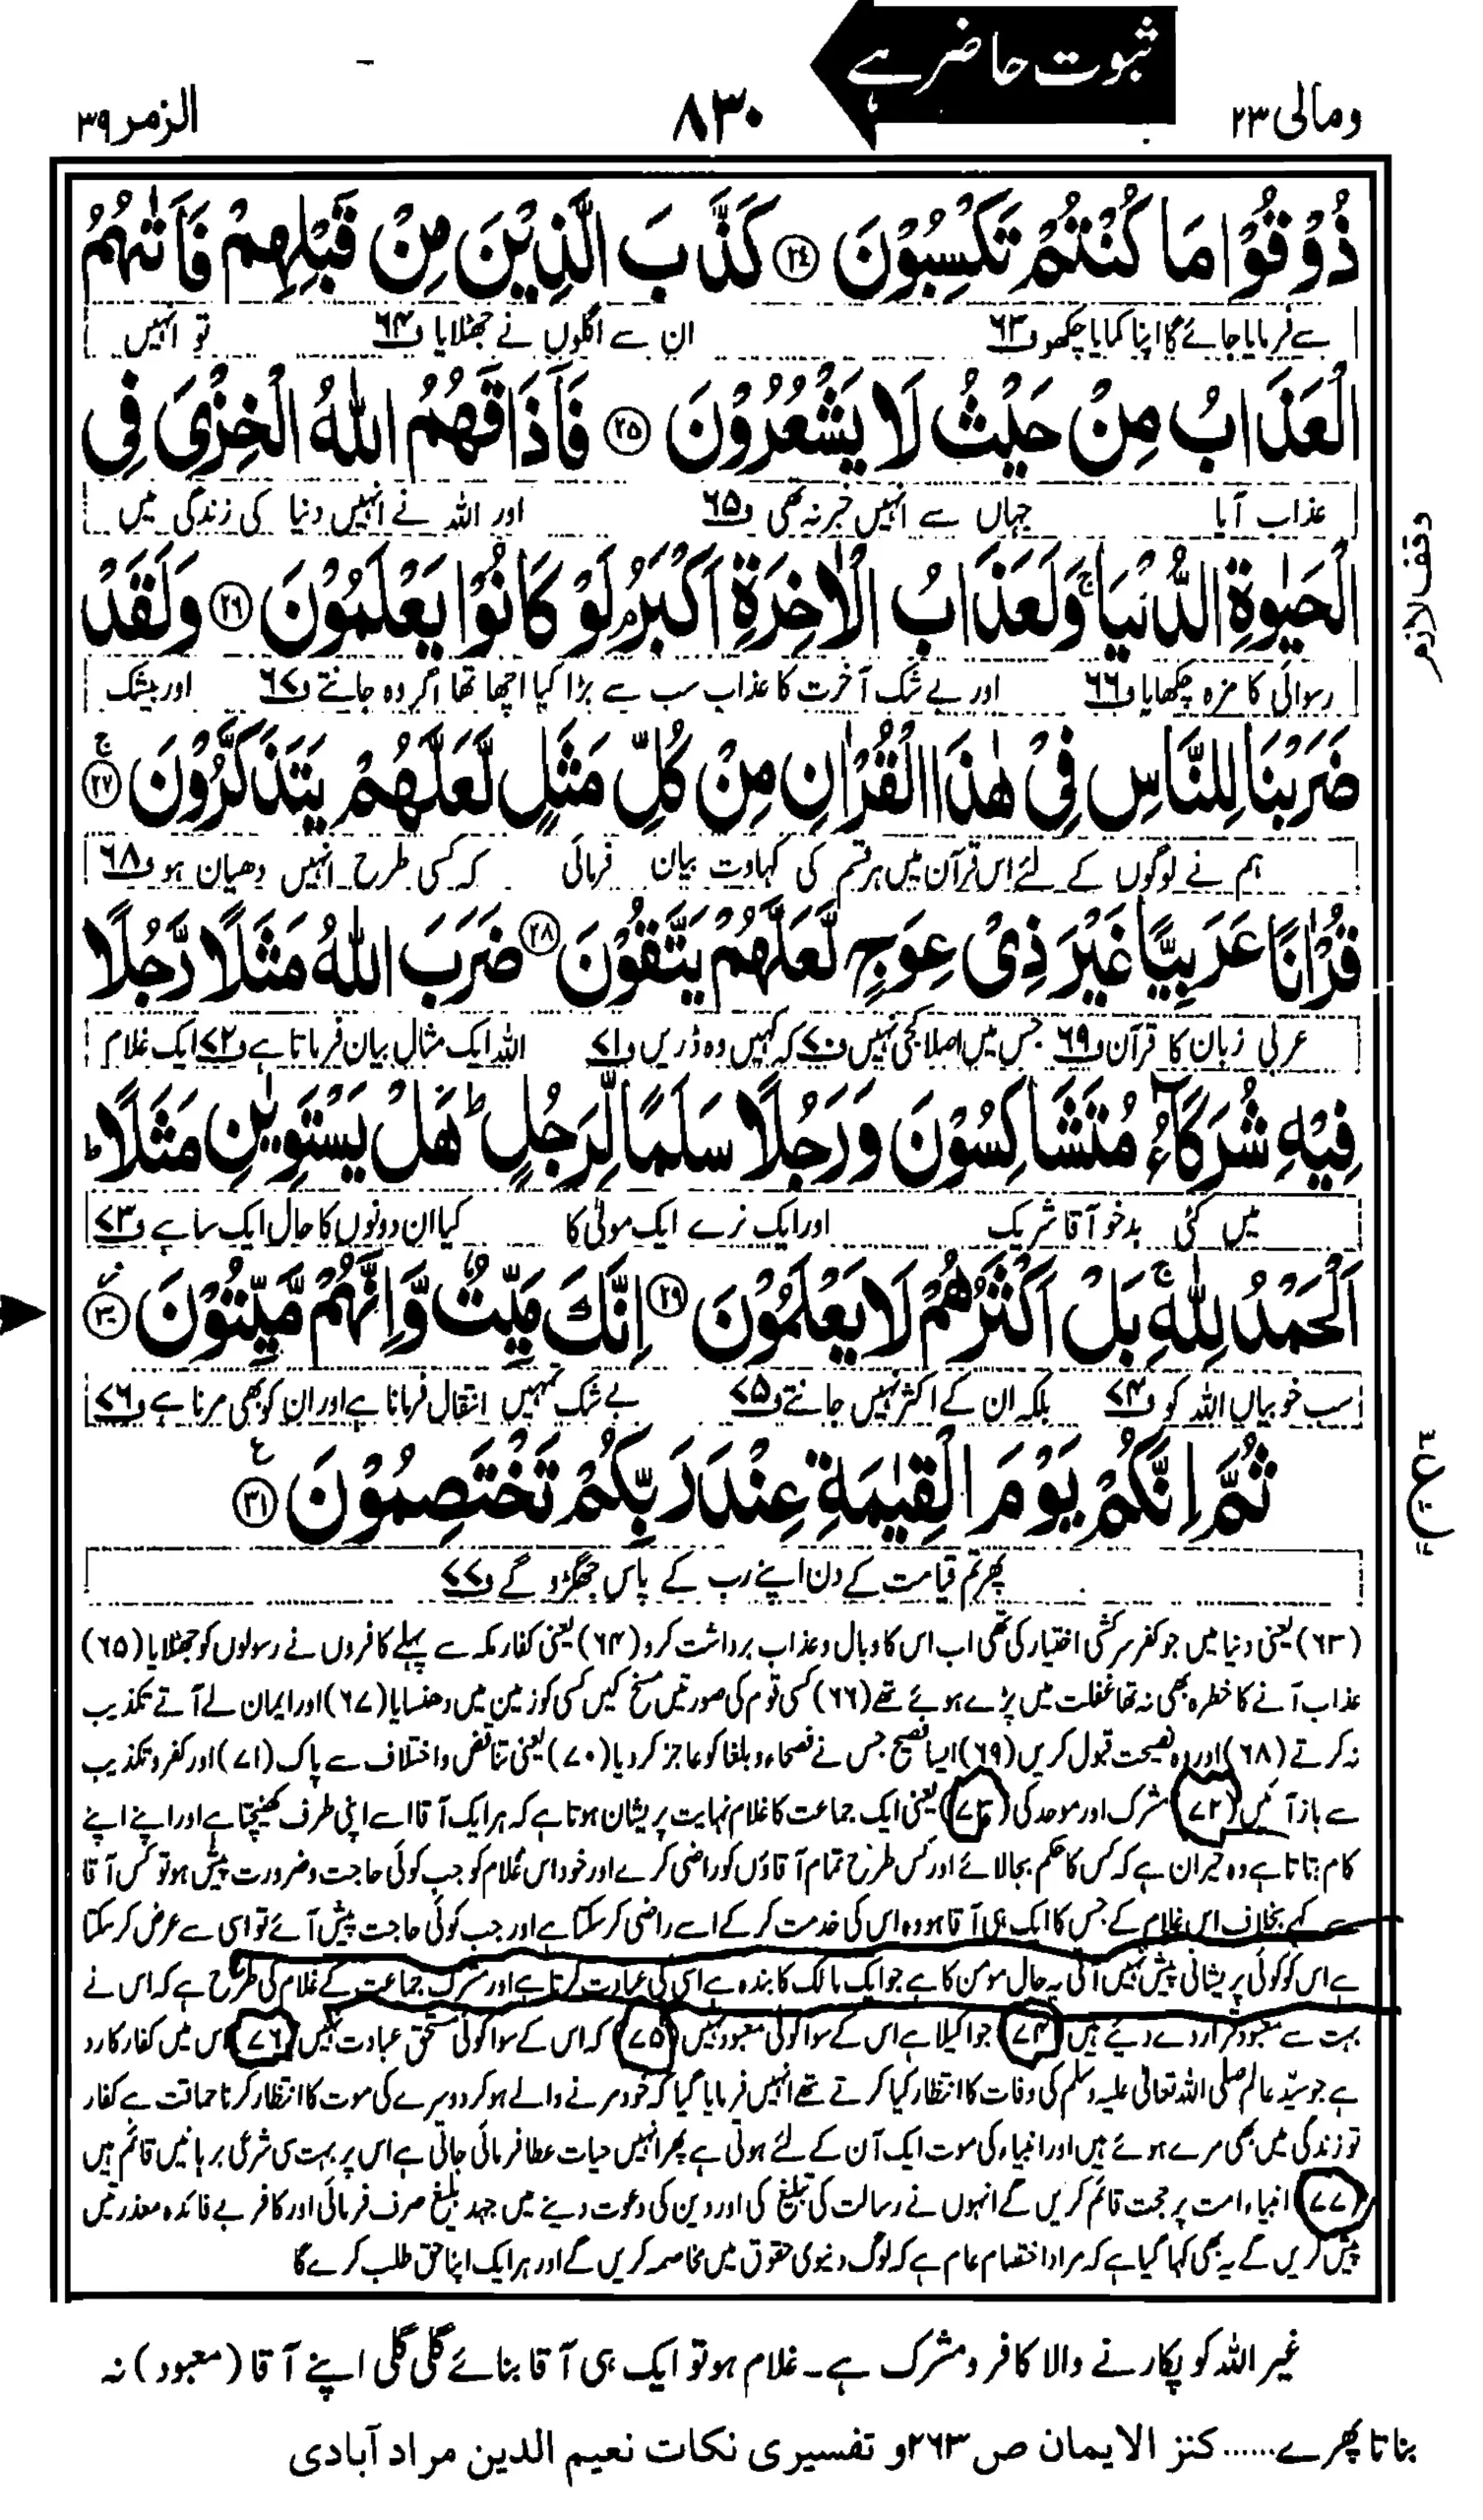 ثبوت حاضر ہے
ومالی ۲۳
۸۳۰
الزمر ۳۹
ذُوْقُوْا مَا كُنْتُمْ تَكْسِبُوْنَ ﴿۲۴﴾ كَذَّبَ الَّذِيْنَ مِنْ قَبْلِهِمْ فَاَتٰىهُمُ
سے فرمایا جائے گا اپنا کمایا چکھو و۶۳ ان سے اگلوں نے جھٹلایا و۶۴ تو انہیں
الْعَذَابُ مِنْ حَيْثُ لَا يَشْعُرُوْنَ ﴿۲۵﴾ فَاَذَاقَهُمُ اللّٰهُ الْخِزْيَ فِي
عذاب آیا جہاں سے انہیں خبر نہ تھی و۶۵ اور اللہ نے انہیں دنیا کی زندگی میں
الْحَيٰوةِ الدُّنْيَا ۚ وَلَعَذَابُ الْاٰخِرَةِ اَكْبَرُ ۘ لَوْ كَانُوْا يَعْلَمُوْنَ ﴿۲۶﴾ وَلَقَدْ
وقف لازم
رسوائی کا مزہ چکھایا و۶۶ اور بے شک آخرت کا عذاب سب سے بڑا کیا اچھا تھا اگر وہ جانتے و۶۷ اور بیشک
ضَرَبْنَا لِلنَّاسِ فِيْ هٰذَا الْقُرْاٰنِ مِنْ كُلِّ مَثَلٍ لَّعَلَّهُمْ يَتَذَكَّرُوْنَ ۚ﴿۲۷﴾
ہم نے لوگوں کے لئے اس قرآن میں ہر قسم کی کہاوت بیان فرمائی کہ کسی طرح انہیں دھیان ہو و۶۸
قُرْاٰنًا عَرَبِيًّا غَيْرَ ذِيْ عِوَجٍ لَّعَلَّهُمْ يَتَّقُوْنَ ﴿۲۸﴾ ضَرَبَ اللّٰهُ مَثَلًا رَّجُلًا
عربی زبان کا قرآن و۶۹ جس میں اصلا کجی نہیں و۷۰ کہ کہیں وہ ڈریں و۷۱ اللہ ایک مثال بیان فرماتا ہے و۷۲ ایک غلام
فِيْهِ شُرَكَآءُ مُتَشَاكِسُوْنَ وَرَجُلًا سَلَمًا لِّرَجُلٍ ؕ هَلْ يَسْتَوِيٰنِ مَثَلًا ؕ
میں کئی بدخو آقا شریک اور ایک نرے ایک مولی کا کیا ان دونوں کا حال ایک سا ہے و۷۳
اَلْحَمْدُ لِلّٰهِ ۚ بَلْ اَكْثَرُهُمْ لَا يَعْلَمُوْنَ ﴿۲۹﴾ اِنَّكَ مَيِّتٌ وَّاِنَّهُمْ مَّيِّتُوْنَ ﴿۳۰﴾
سب خوبیاں اللہ کو و۷۴ بلکہ ان کے اکثر نہیں جانتے و۷۵ بے شک تمہیں انتقال فرمانا ہے اور ان کو بھی مرنا ہے و۷۶
ثُمَّ اِنَّكُمْ يَوْمَ الْقِيٰمَةِ عِنْدَ رَبِّكُمْ تَخْتَصِمُوْنَ ﴿۳۱﴾
پھر تم قیامت کے دن اپنے رب کے پاس جھگڑو گے و۷۷
(۶۳) یعنی دنیا میں جو کفر سرکشی اختیار کی تھی اب اس کا وبال و عذاب برداشت کرو (۶۴) یعنی کفار مکہ سے پہلے کافروں نے رسولوں کو جھٹلایا (۶۵)
عذاب آنے کا خطرہ بھی نہ تھا غفلت میں پڑے ہوئے تھے (۶۶) کسی قوم کی صورتیں مسخ کیں کسی کو زمین میں دھنسایا (۶۷) اور ایمان لے آتے تکذیب
نہ کرتے (۶۸) اور وہ نصیحت قبول کریں (۶۹) ایسا فصیح جس نے فصحاء و بلغا کو عاجز کر دیا (۷۰) یعنی تناقض و اختلاف سے پاک (۷۱) اور کفر و تکذیب
سے باز آئیں (۷۲) مشرک اور موحد کی (۷۳) یعنی ایک جماعت کا غلام نہایت پریشان ہوتا ہے کہ ہر ایک آقا اسے اپنی طرف کھینچتا ہے اور اپنے اپنے
کام بتاتا ہے وہ حیران ہے کہ کس کا حکم بجا لائے اور کس طرح تمام آقاؤں کو راضی کرے اور خود اس غلام کو جب کوئی حاجت و ضرورت پیش ہو تو کس آقا
سے کہے بخلاف اس غلام کے جس کا ایک ہی آقا ہو وہ اس کی خدمت کر کے اسے راضی کر سکتا ہے اور جب کوئی حاجت پیش آئے تو اسی سے عرض کر سکتا
ہے اس کو کوئی پریشانی پیش نہیں آتی یہ حال مومن کا ہے جو ایک مالک کا بندہ ہے اسی کی عبادت کرتا ہے اور مشرک جماعت کے غلام کی طرح ہے کہ اس نے
بہت سے معبود قرار دے دیئے ہیں (۷۴) جو اکیلا ہے اس کے سوا کوئی معبود نہیں (۷۵) کہ اس کے سوا کوئی مستحق عبادت نہیں (۷۶) اس میں کفار کا رد
ہے جو سید عالم صلی اللہ تعالی علیہ وسلم کی وفات کا انتظار کیا کرتے تھے انہیں فرمایا گیا کہ خود مرنے والے ہو کر دوسرے کی موت کا انتظار کرنا حماقت ہے کفار
تو زندگی میں بھی مرے ہوئے ہیں اور انبیاء کی موت ایک آن کے لئے ہوتی ہے پھر انہیں حیات عطا فرمائی جاتی ہے اس پر بہت سی شرعی برہانیں قائم ہیں
(۷۷) انبیاء امت پر حجت قائم کریں گے انہوں نے رسالت کی تبلیغ کی اور دین کی دعوت دینے میں جہد بلیغ صرف فرمائی اور کافر بے فائدہ معذرتیں
پیش کریں گے یہ بھی کہا گیا ہے کہ مراد اختصام عام ہے کہ لوگ دنیوی حقوق میں مخاصمہ کریں گے اور ہر ایک اپنا حق طلب کرے گا
غیر اللہ کو پکارنے والا کافر و مشرک ہے۔ غلام ہو تو ایک ہی آقا بنائے گلی گلی اپنے آقا (معبود) نہ
بناتا پھرے......کنز الایمان ص ۲۶۳ و تفسیری نکات نعیم الدین مراد آبادی